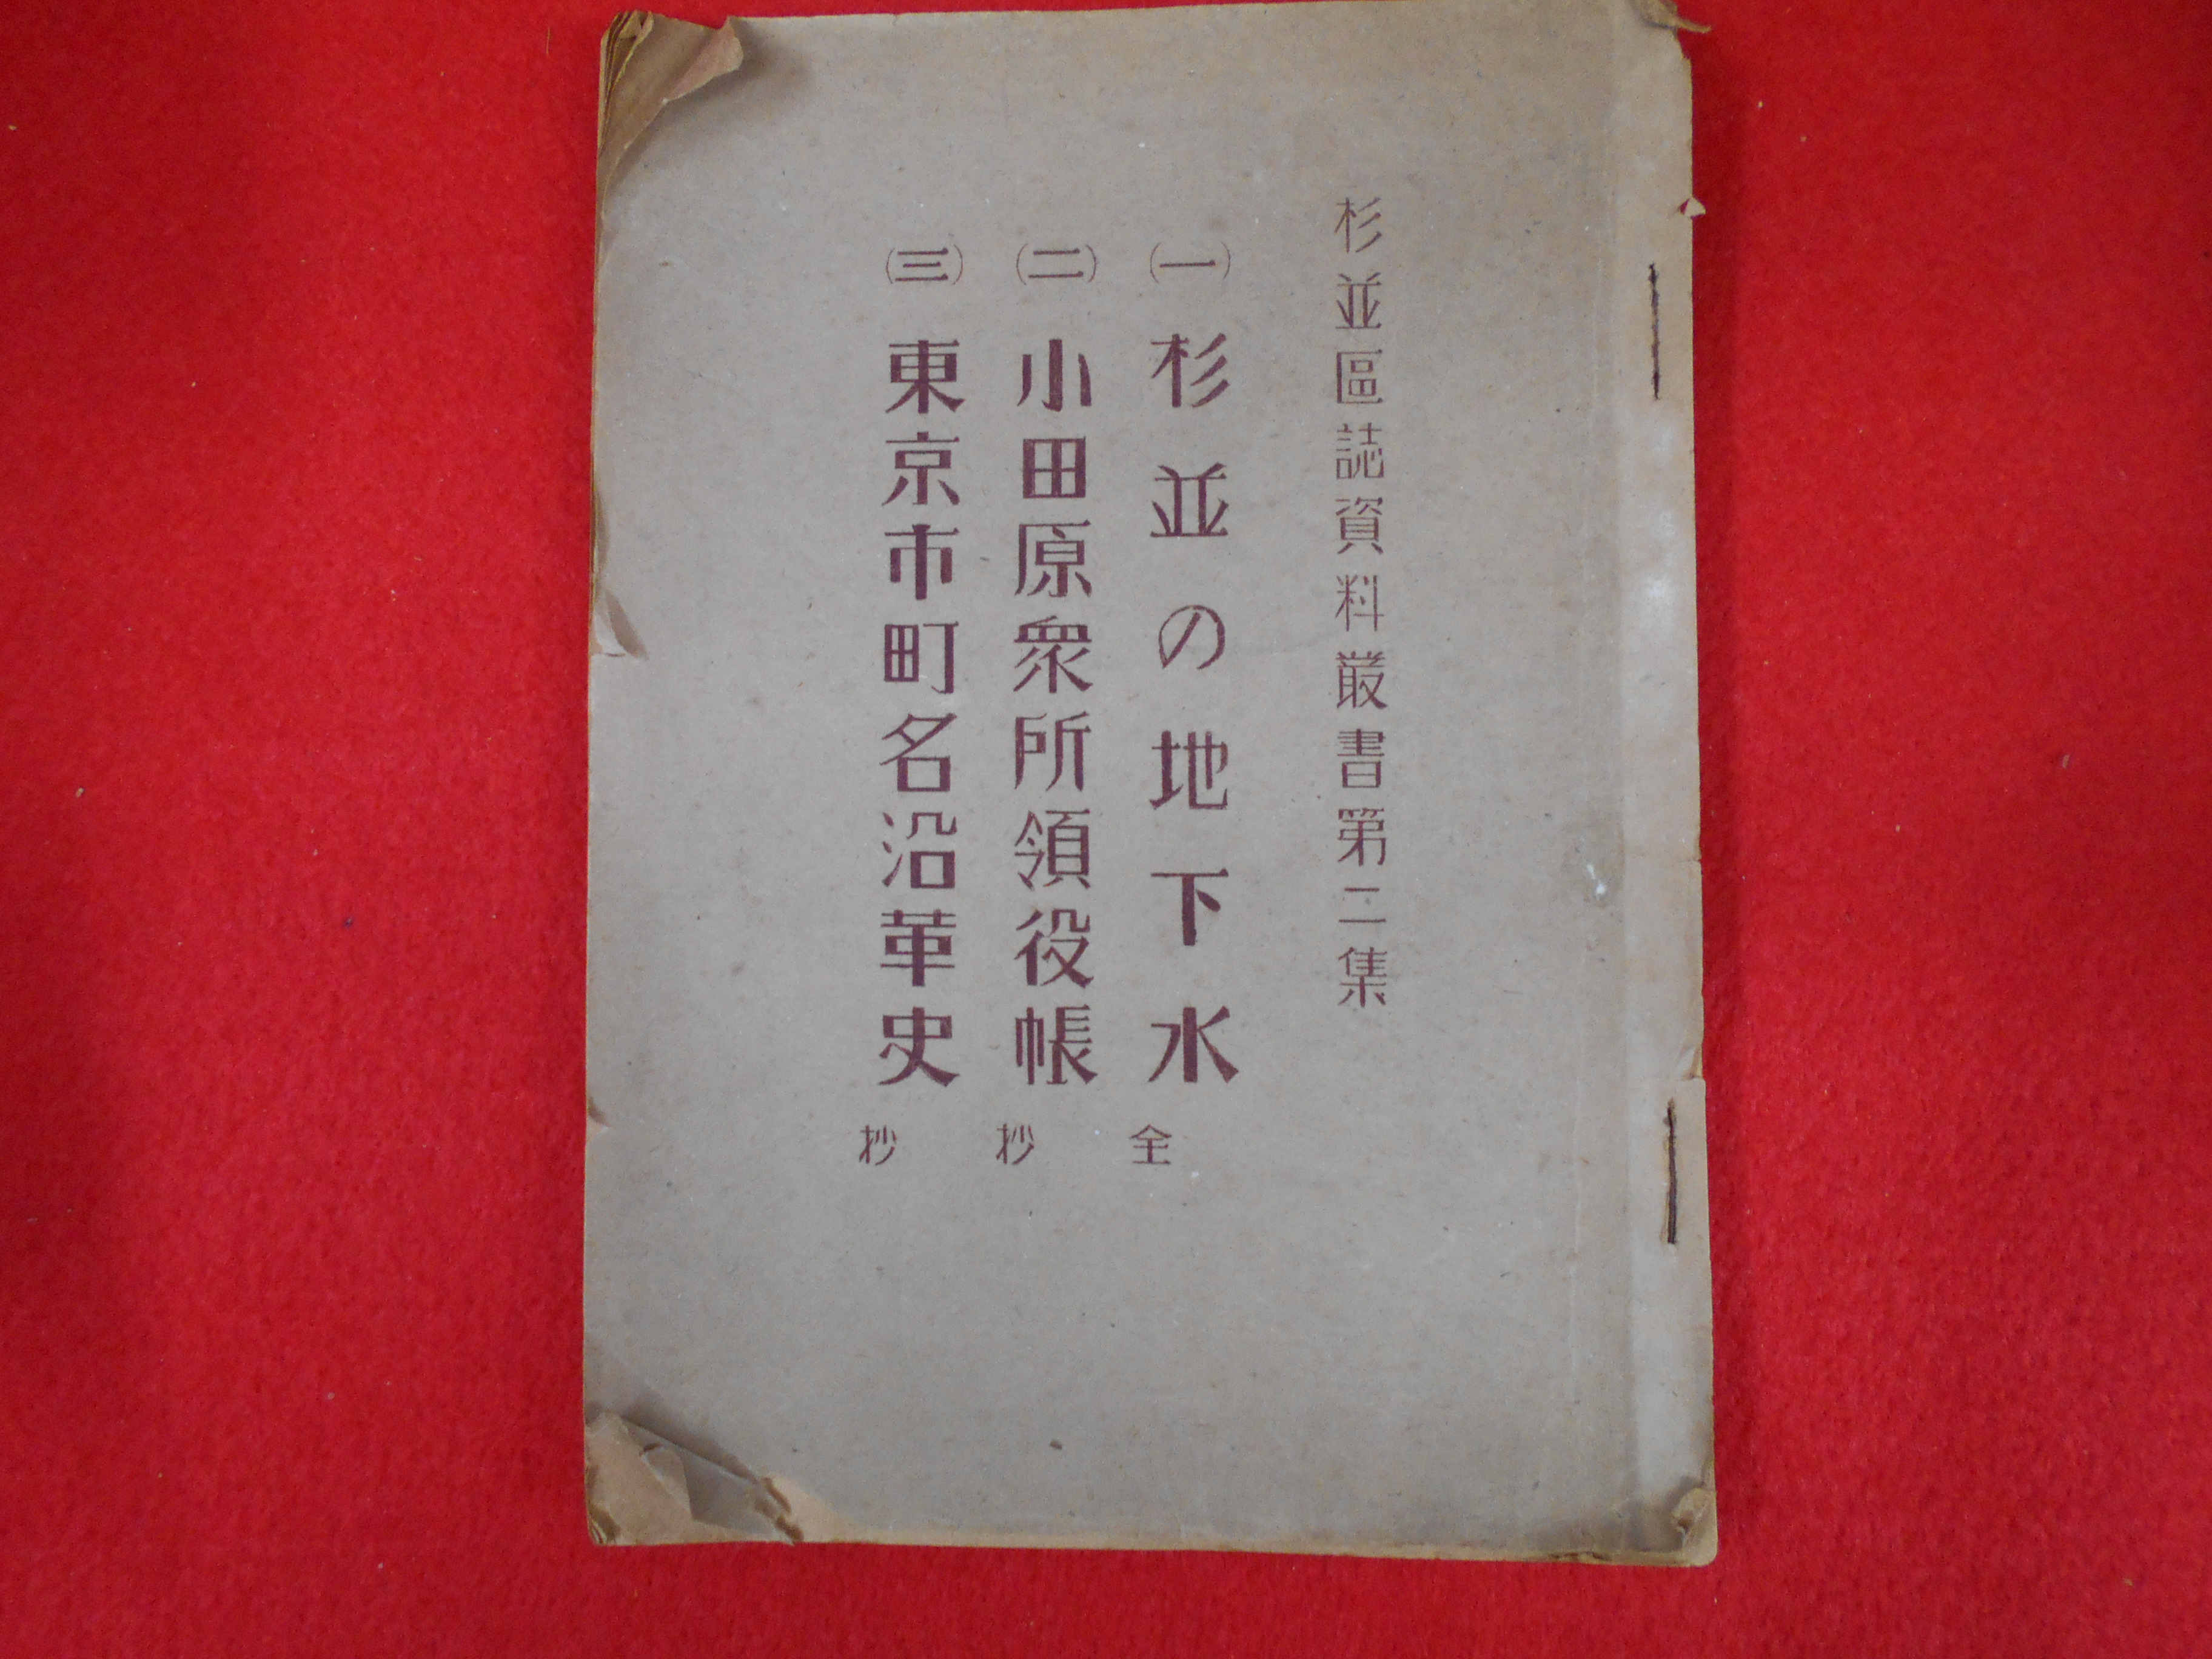 杉並區誌資料叢書第二集
㈠ 杉並の地下水 全
㈡ 小田原衆所領役帳 抄
㈢ 東京市町名沿革史 抄